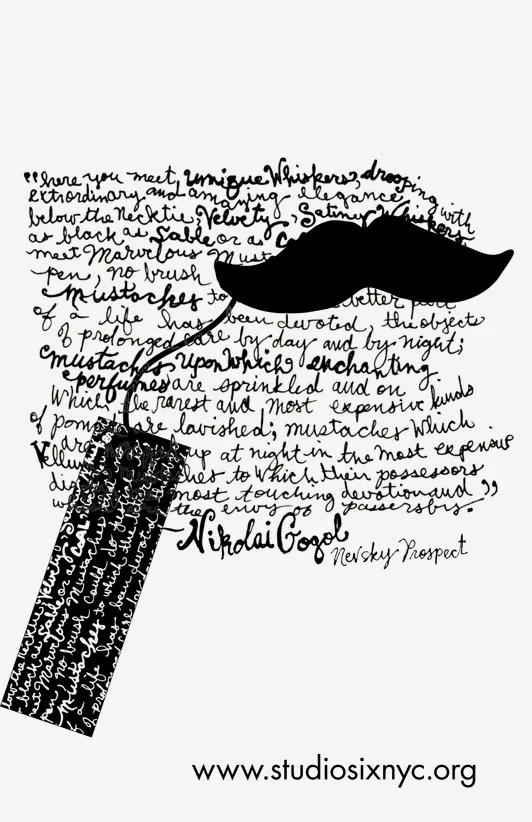 "here you meet, unique Whiskers, drooping
extrordinary and amazing elegance
below the necktie, Velvety, Satiny Whiskers with
as black as Sable or as
meet Marvelous Must
pen, no brush
mustaches to better part
of a life has been devoted, the objects
of prolonged care by day and by night;
mustaches upon which enchanting
perfumes are sprinkled and on
Which, the rarest and most expensive kinds
of pom are lavished; mustaches which
are up at night in the most expensive
Vellum ches to which their possessors
di most touching devotion and
w the envy of passersby."
- Nikolai Gogol
Nevsky Prospect
below the necktie, Velvety
black as Sable or as
meet Marvelous Mustaches
pen, no brush could do
Mustaches to which the
of a life has been devoted
of prolonged care by day
www.studiosixnyc.org